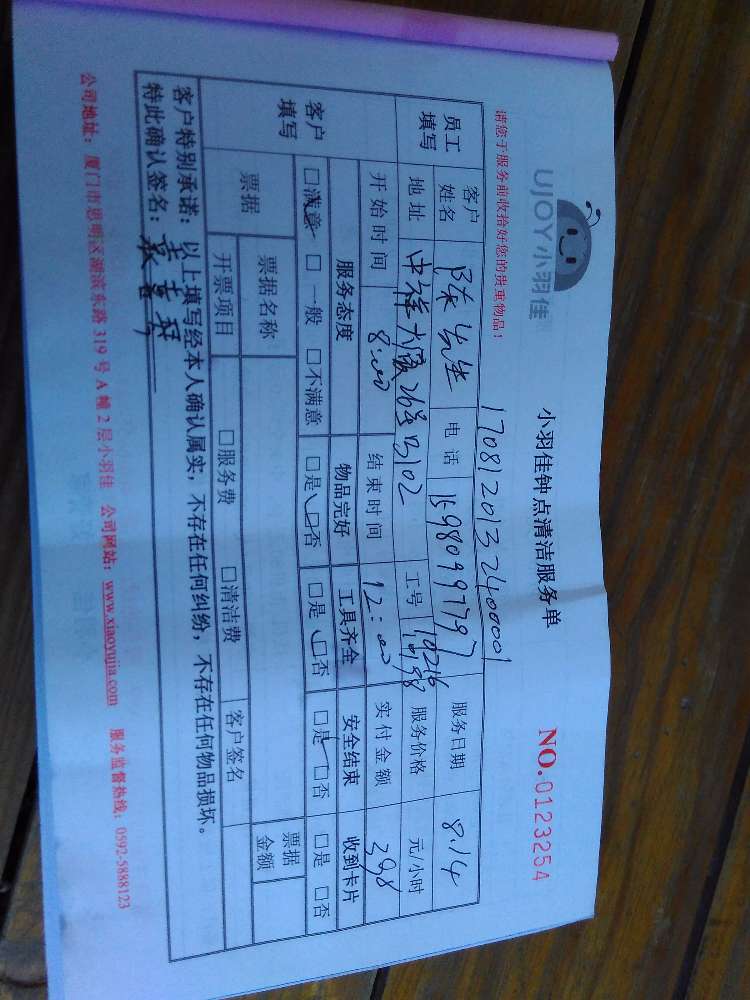 UJOY小羽佳
小羽佳钟点清洁服务单
NO.0123254
请您于服务前收拾好您的贵重物品!
170812013240001
员工填写
客户姓名 陈先生 电话 15980997797 服务日期 8.14
地址 26号3102 工号 10216 服务价格 元/小时
开始时间 8:00 结束时间 12:00 实付金额 298
客户填写
服务态度 物品完好 工具齐全 安全结束 收到卡片
□满意 □一般 □不满意 □是 □否 □是 □否 □是 □否 □是 □否
票据 票据名称 票据金额
开票项目 □服务费 □清洁费 客户签名
客户特别承诺:以上填写经本人确认属实,不存在任何纠纷,不存在任何物品损坏。
特此确认签名:
公司地址:厦门市思明区湖滨东路319号A幢2层小羽佳 公司网站:www.xiaoyujia.com 服务监督热线:0592-5888123